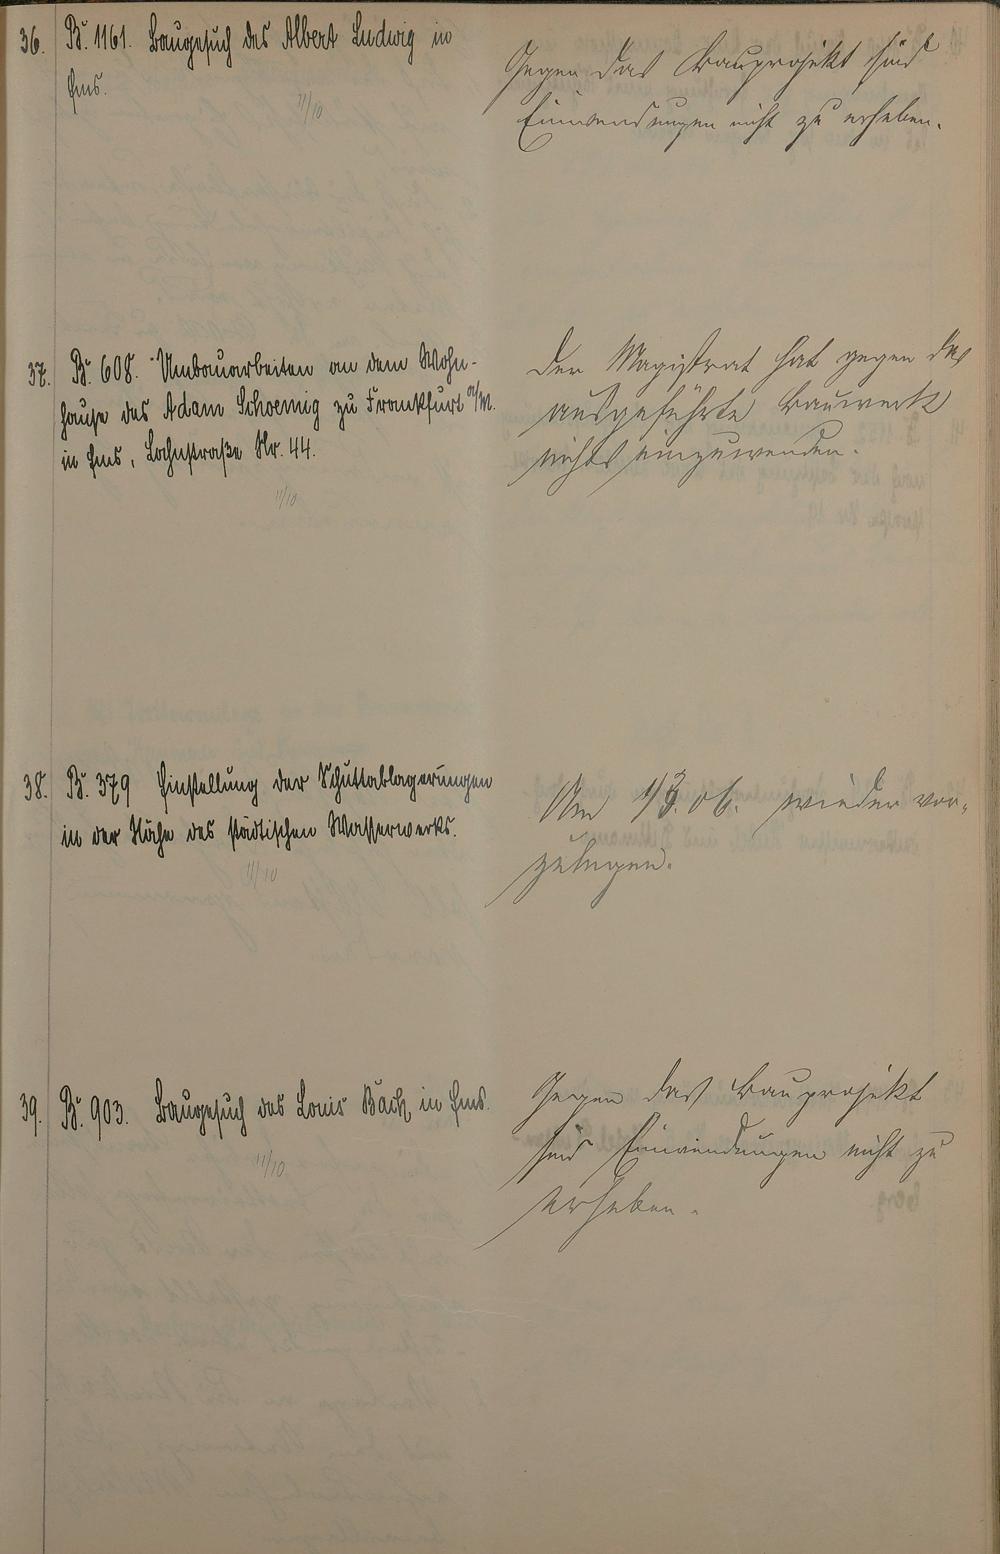 36. B. 1161. Baugesuch des Albert Ludwig in
Ems.
11/10
Gegen das Bauprojekt sind
Einwendungen nicht zu erheben.
37. B. 608. Umbauarbeiten an dem Wohn-
hause des Adam Schoemig zu Frankfurt a/M.
in Ems, Lahnstraße Nr. 44.
11/10
Der Magistrat hat gegen das
ausgeführte Bauwerk
nichts einzuwenden.
38. B. 379 Einstellung der Schuttablagerungen
in der Nähe des städtischen Wasserwerks.
11/10
Am 1/3. 06. wieder vor-
zulegen.
39. B. 903. Baugesuch des Louis Bach in Ems.
11/10
Gegen das Bauprojekt
sind Einwendungen nicht zu
erheben.